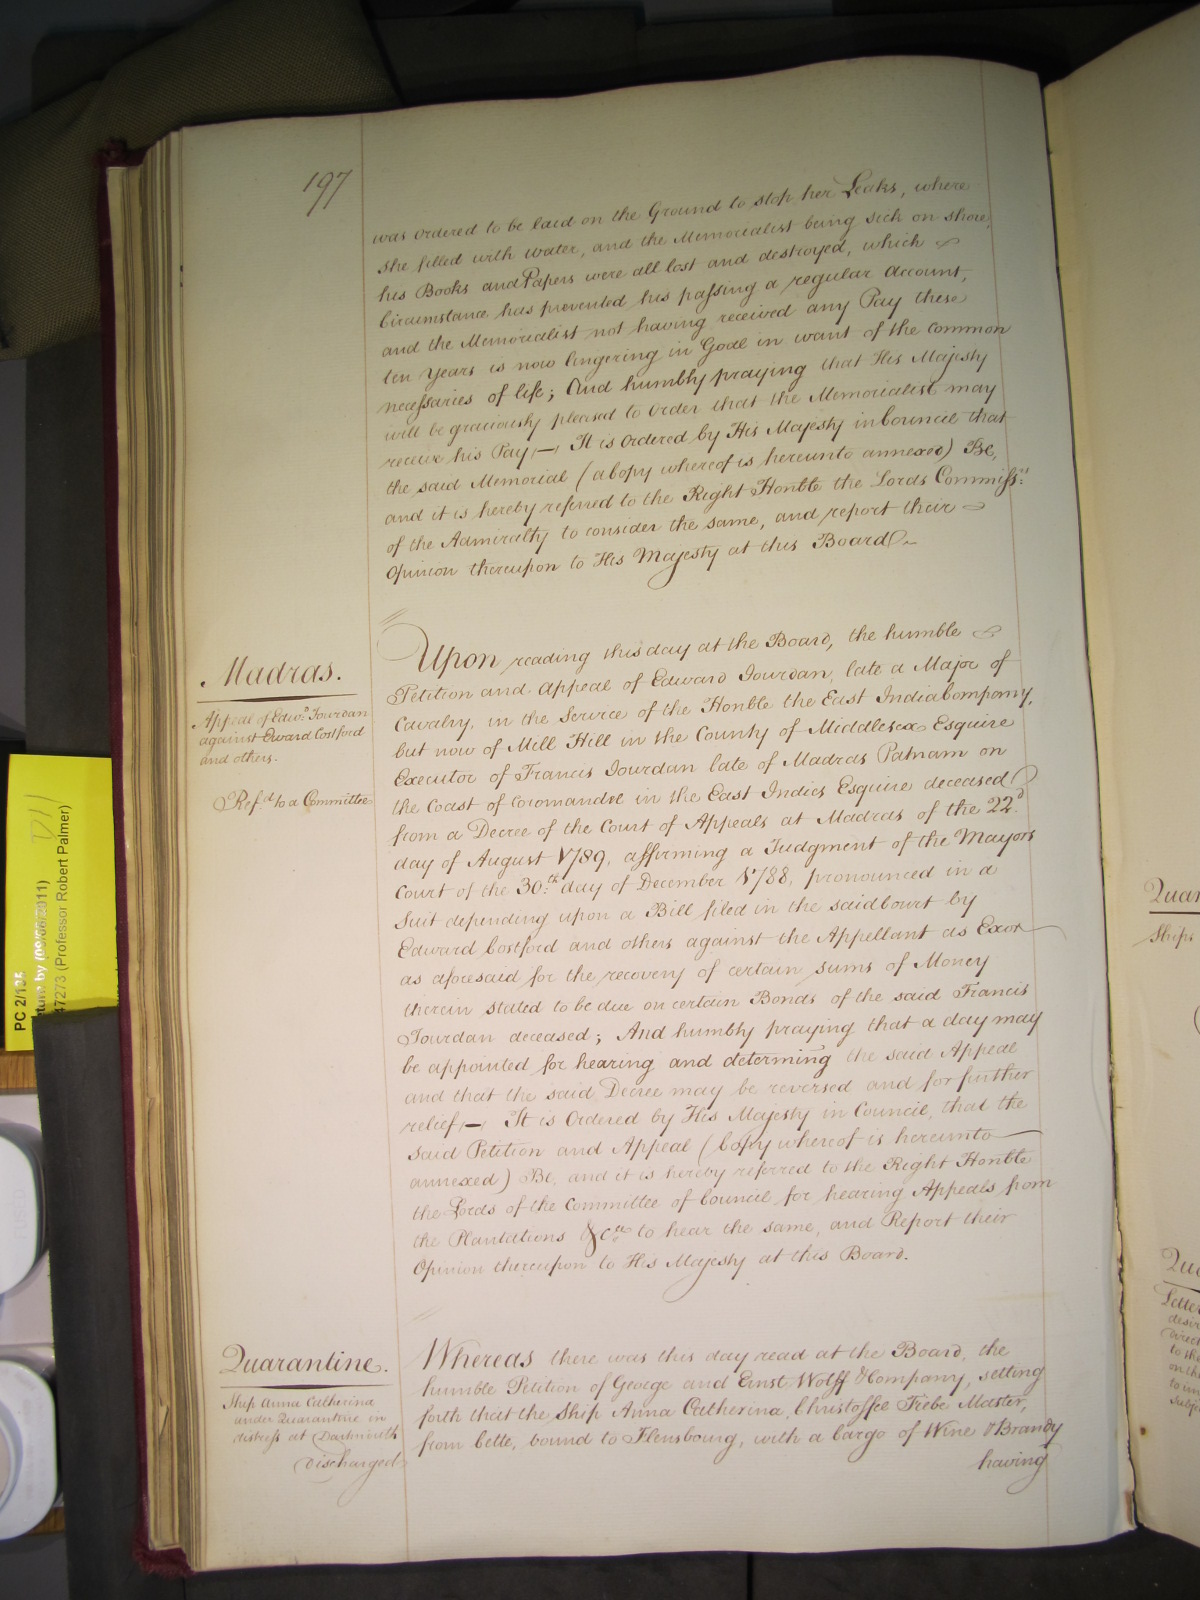 197
was ordered to be laid on the Ground to stop her Leaks, where
she filled with water, and the Memorialist being sick on shore,
his Books and Papers were all lost and destroyed, which
Circumstance has prevented his passing a regular Account,
and the Memorialist not having received any Pay these
ten Years is now lingering in Goal in want of the common
necessaries of life; And humbly praying that His Majesty
will be graciously pleased to Order that the Memorialist may
receive his Pay,— It is Ordered by His Majesty in Council that
the said Memorial (a Copy whereof is hereunto annexed) Be,
and it is hereby referred to the Right Honble the Lords Commissrs:
of the Admiralty to consider the same, and report their
Opinion thereupon to His Majesty at this Board.
Madras.
Appeal of Edwd. Jourdan
against Eward Cotsford
and others.
Refd. to a Committee
Upon reading this day at the Board, the humble
Petition and Appeal of Edward Jourdan, late a Major of
Cavalry, in the Service of the Honble the East India Company,
but now of Mill Hill in the County of Middlesex Esquire
Executor of Francis Jourdan late of Madras Patnam on
the Coast of Coromandel in the East Indies Esquire deceased
from a Decree of the Court of Appeals at Madras of the 22d.
day of August 1789, affirming a Judgment of the Mayors
Court of the 30th: day of December 1788, pronounced in a
Suit depending upon a Bill filed in the said Court by
Edward Cotsford and others against the Appellant as Exor
as aforesaid for the recovery of certain sums of Money
therein stated to be due on certain Bonds of the said Francis
Jourdan deceased; And humbly praying that a day may
be appointed for hearing and determining the said Appeal
and that the said Decree may be reversed and for further
relief,— It is Ordered by His Majesty in Council, that the
said Petition and Appeal (Copy whereof is hereunto
annexed) Be, and it is hereby referred to the Right Honble
the Lords of the Committee of Council for hearing Appeals from
the Plantations &ca. to hear the same, and Report their
Opinion thereupon to His Majesty at this Board.
Quarantine.
Ship Anna Catherina
under Quarantine in
distress at Dartmouth
discharged
Whereas there was this day read at the Board, the
humble Petition of George and Ernst Wolff & Company, setting
forth that the Ship Anna Catherina, Christoffee Frebe Master,
from Cette, bound to Flensbourg, with a Cargo of Wine & Brandy
having
PC 2/135
47273 (Professor Robert Palmer)
Ships